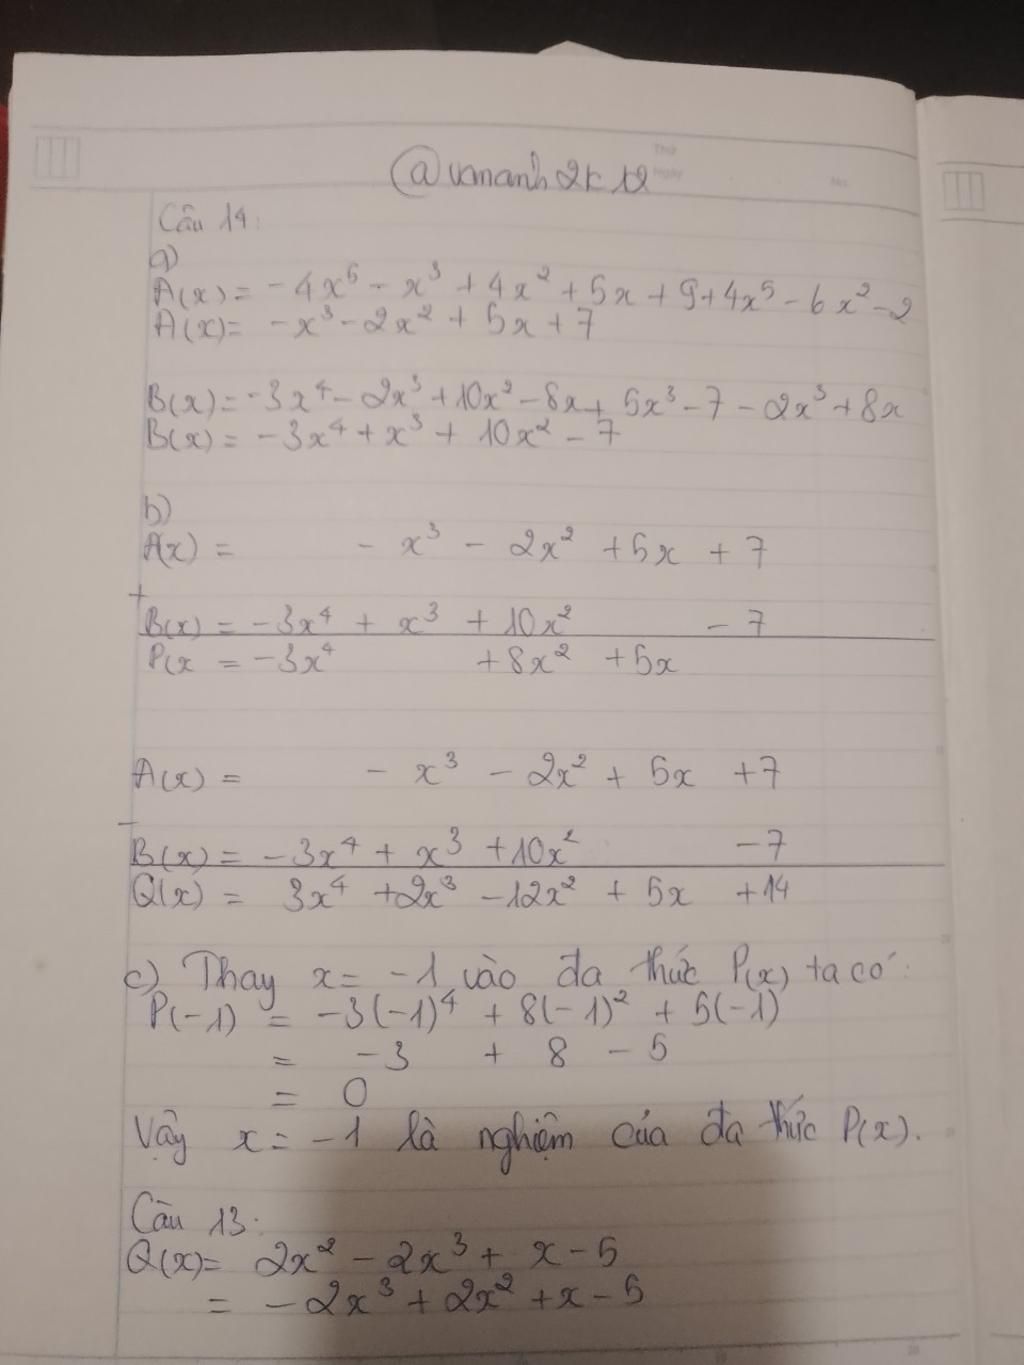 Thứ
Ngày
No.
@vananh2k12
Câu 14:
a)
A(x) = -4x⁵ - x³ + 4x² + 5x + 9 + 4x⁵ - 6x² - 2
A(x) = -x³ - 2x² + 5x + 7
B(x) = -3x⁴ - 2x³ + 10x² - 8x + 5x³ - 7 - 2x³ + 8x
B(x) = -3x⁴ + x³ + 10x² - 7
b)
A(x) = - x³ - 2x² + 5x + 7
+
B(x) = -3x⁴ + x³ + 10x² - 7
P(x = -3x⁴ + 8x² + 5x
A(x) = - x³ - 2x² + 5x + 7
-
B(x) = -3x⁴ + x³ + 10x² - 7
Q(x) = 3x⁴ + 2x³ - 12x² + 5x + 14
c) Thay x = -1 vào đa thức P(x) ta có:
P(-1) = -3(-1)⁴ + 8(-1)² + 5(-1)
= -3 + 8 - 5
= 0
Vậy x = -1 là nghiệm của đa thức P(x).
Câu 13:
Q(x) = 2x² - 2x³ + x - 5
= -2x³ + 2x² + x - 5